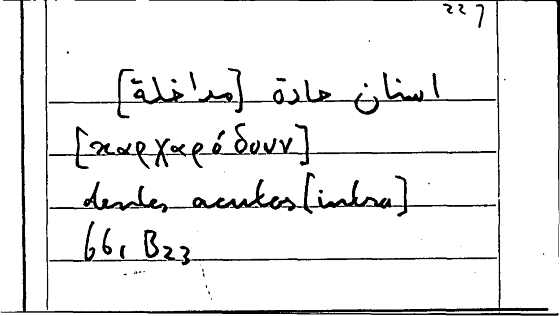 227
اسنان حادة [مداخلة]
[καρχαρόδουν]
dentes acutos [intra]
66, B23